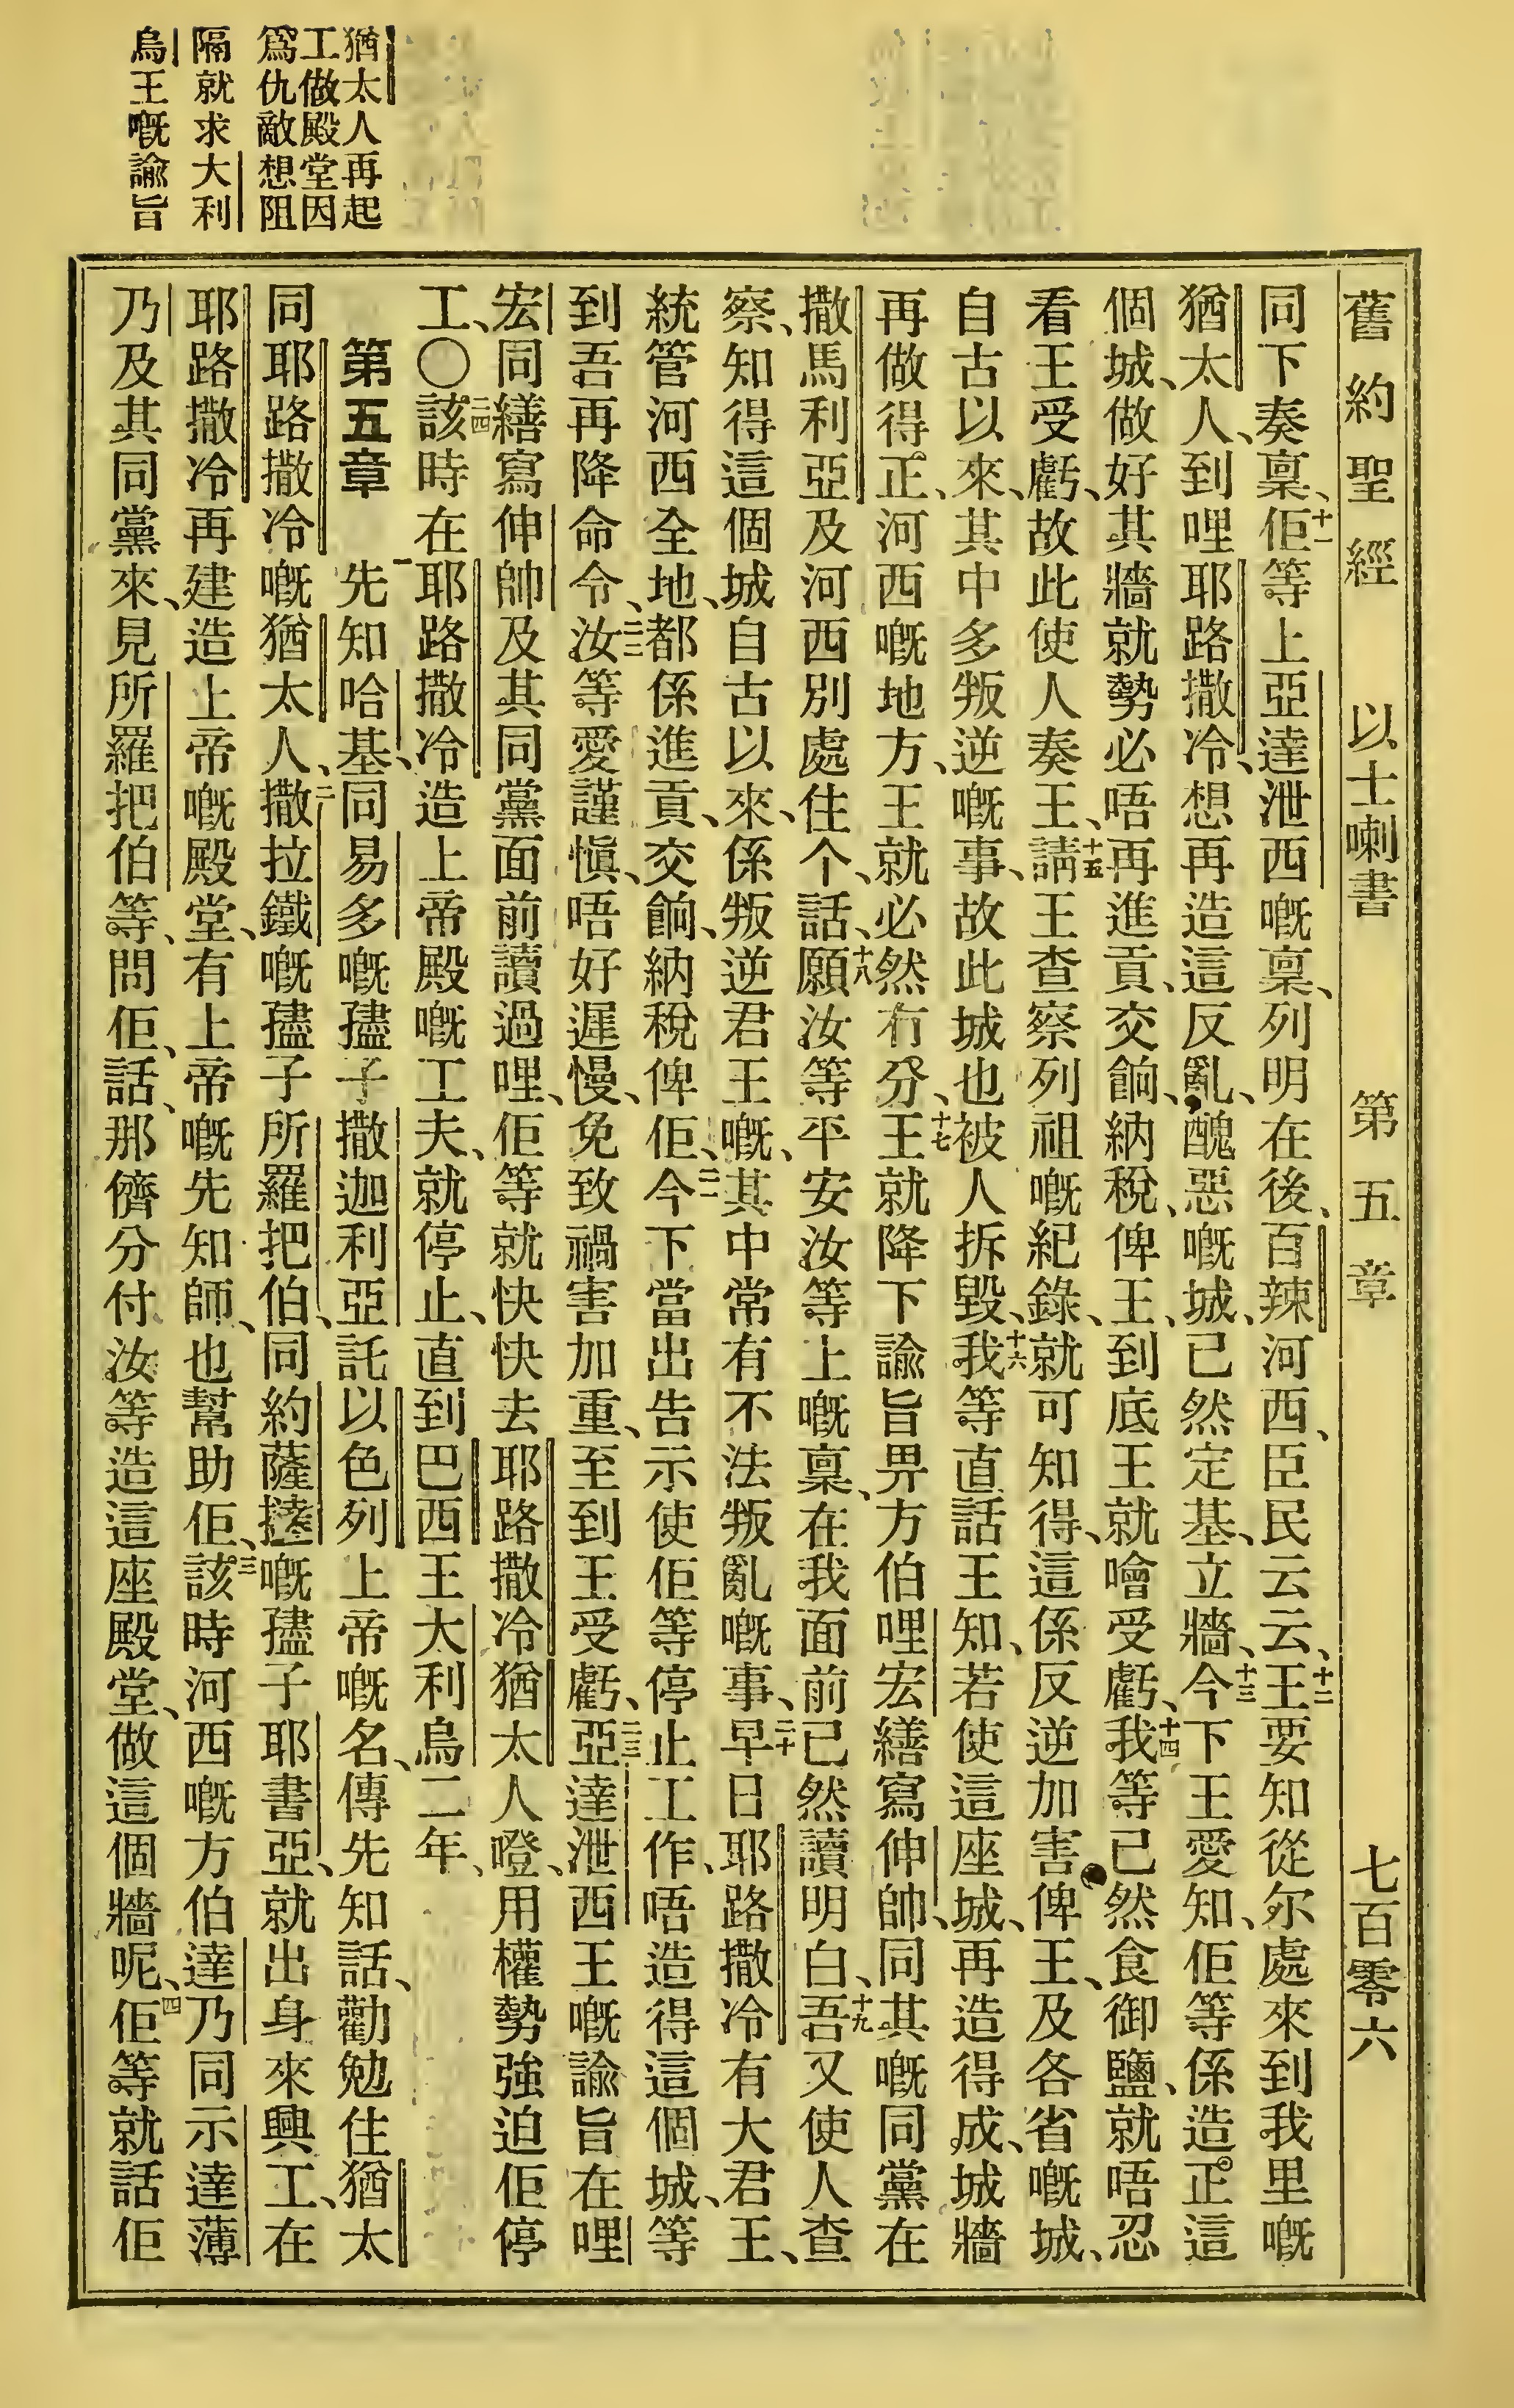 舊約聖經 以士喇書 第五章 七百零六
同下奏稟、十一佢等上亞達泄西嘅稟、列明在後、百辣河西、臣民云云、十二王要知從尔處來到我里嘅
猶太人、到哩耶路撒冷、想再造這反亂、醜惡嘅城、已然定基、立牆、十三今下王愛知、佢等係造正這
個城、做好其牆就勢必唔再進貢、交餉、納稅、俾王、到底王就噲受虧、十四我等已然食御鹽、就唔忍
看王受虧、故此使人奏王、十五請王查察列祖嘅紀錄、就可知得、這係反逆加害俾王、及各省嘅城、
自古以來、其中多叛逆嘅事、故此城也被人拆毀、十六我等直話王知、若使這座城、再造得成、城牆
再做得正、河西嘅地方、王就必然冇分、十七王就降下諭旨畀方伯哩宏繕寫伸帥、同其嘅同黨在
撒馬利亞及河西別處住个、話、十八願汝等平安汝等上嘅稟、在我面前已然讀明白、十九吾又使人查
察、知得這個城自古以來、係叛逆君王嘅、其中常有不法叛亂嘅事、二十早日耶路撒冷有大君王、
統管河西全地、都係進貢、交餉、納稅俾佢、二一今下當出告示使佢等停止工作、唔造得這個城、等
到吾再降命令、二二汝等愛謹愼、唔好遲慢、免致禍害加重、至到王受虧、二三亞達泄西王嘅諭旨在哩
宏同繕寫伸帥及其同黨面前讀過哩、佢等就快快去耶路撒冷猶太人噔、用權勢強迫佢停
工、〇二四該時在耶路撒冷造上帝殿嘅工夫、就停止、直到巴西王大利烏二年、
第五章 一先知哈基、同易多嘅𡥧子撒迦利亞託以色列上帝嘅名、傳先知話、勸勉住猶太
同耶路撒冷嘅猶太人、二撒拉鐵嘅𡥧子所羅把伯、同約薩撻嘅𡥧子耶書亞、就出身來興工、在
耶路撒冷再建造上帝嘅殿堂、有上帝嘅先知師、也幫助佢、三該時河西嘅方伯達乃同示達薄
乃及其同黨來、見所羅把伯等、問佢、話、那儕分付汝等造這座殿堂、做這個牆呢、四佢等就話佢
猶太人再起
工做殿堂因
爲仇敵想阻
隔就求大利
烏王嘅諭旨